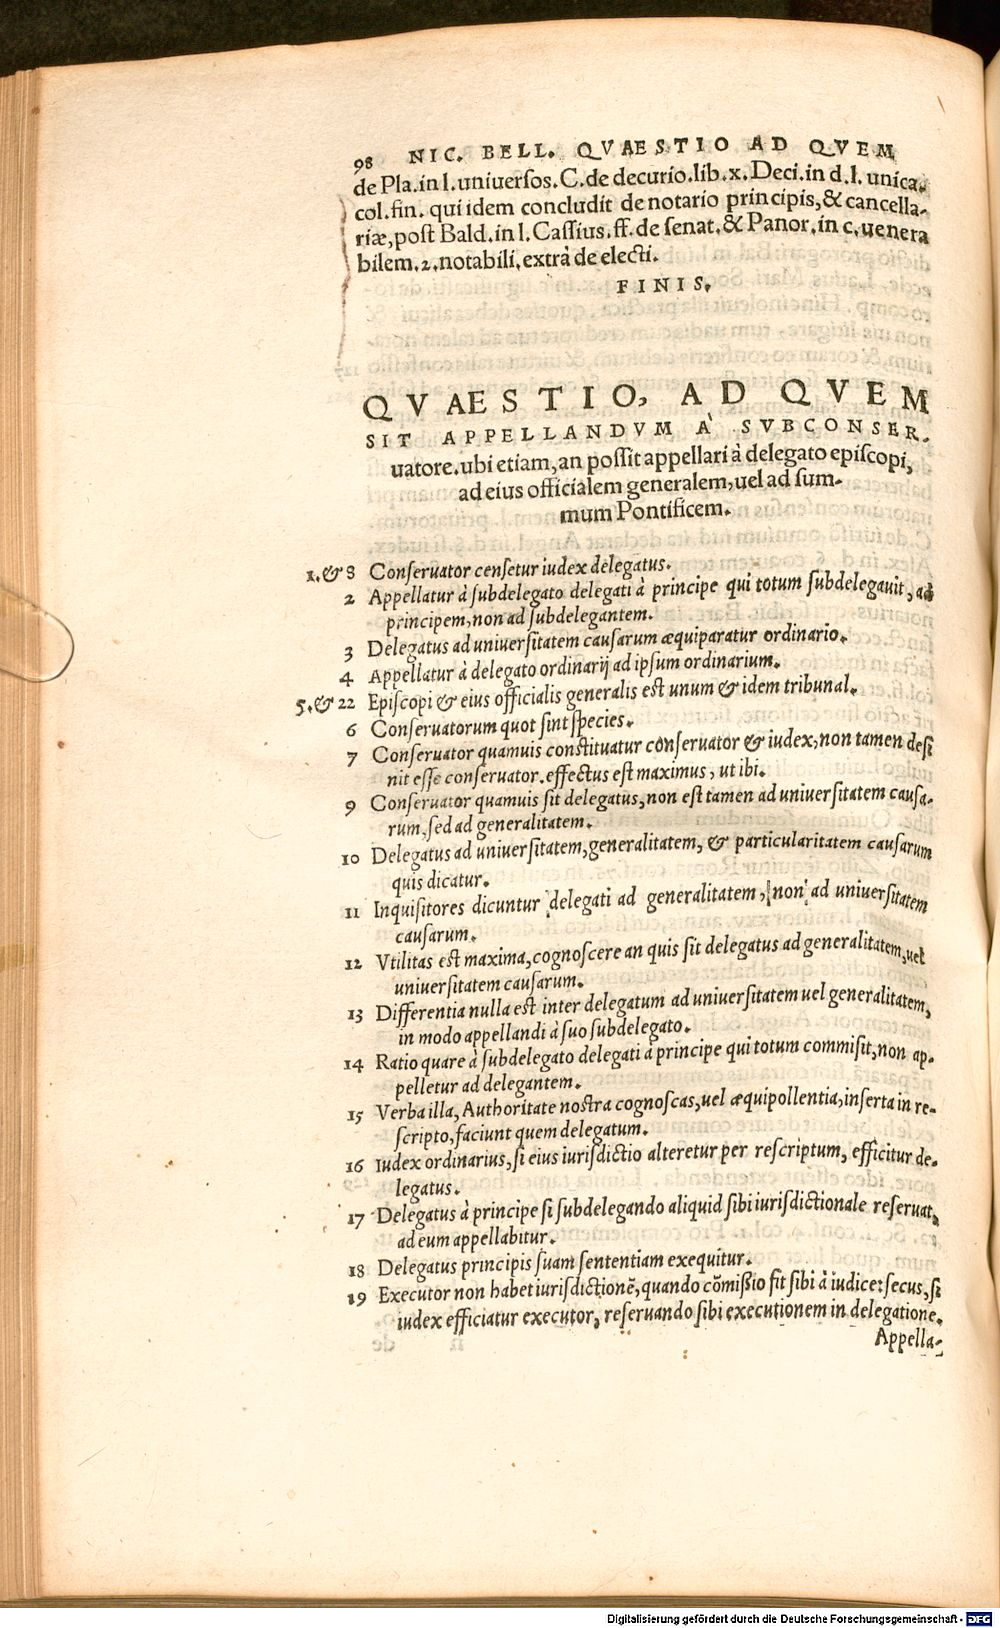 98 NIC. BELL. QVAESTIO AD QVEM
de Pla.in l.uniuersos.C.de decurio.lib.x.Deci.in d.l.unica.
col.fin. qui idem concludit de notario principis,& cancella-
riæ,post Bald.in l.Cassius.ff.de senat.& Panor.in c.uenera
bilem.2.notabili.extrà de electi.
FINIS.
QVAESTIO, AD QVEM
SIT APPELLANDVM A' SVBCONSER-
uatore.ubi etiam,an possit appellari à delegato episcopi,
ad eius officialem generalem,uel ad sum-
mum Pontificem.
1.& 8 Conseruator censetur iudex delegatus.
2 Appellatur à subdelegato delegati à principe qui totum subdelegauit, ad
principem,non ad subdelegantem.
3 Delegatus ad uniuersitatem causarum æquiparatur ordinario.
4 Appellatur à delegato ordinarij ad ipsum ordinarium.
5.& 22 Episcopi & eius officialis generalis est unum & idem tribunal.
6 Conseruatorum quot sint species.
7 Conseruator quamuis constituatur conseruator & iudex,non tamen desi
nit esse conseruator.effectus est maximus, ut ibi.
9 Conseruator quamuis sit delegatus,non est tamen ad uniuersitatem causa-
rum,sed ad generalitatem.
10 Delegatus ad uniuersitatem,generalitatem, & particularitatem causarum
quis dicatur.
11 Inquisitores dicuntur delegati ad generalitatem, non ad uniuersitatem
causarum.
12 Vtilitas est maxima,cognoscere an quis sit delegatus ad generalitatem,uel
uniuersitatem causarum.
13 Differentia nulla est inter delegatum ad uniuersitatem uel generalitatem,
in modo appellandi à suo subdelegato.
14 Ratio quare à subdelegato delegati à principe qui totum commisit,non ap-
pelletur ad delegantem.
15 Verba illa, Authoritate nostra cognoscas,uel æquipollentia,inserta in re-
scripto,faciunt quem delegatum.
16 Iudex ordinarius,si eius iurisdictio alteretur per rescriptum, efficitur de-
legatus.
17 Delegatus à principe si subdelegando aliquid sibi iurisdictionale reseruat,
ad eum appellabitur.
18 Delegatus principis suam sententiam exequitur.
19 Executor non habet iurisdictionē,quando cōmißio fit sibi à iudice:secus,si
iudex efficiatur executor, reseruando sibi executionem in delegatione.
Appella-
Digitalisierung gefördert durch die Deutsche Forschungsgemeinschaft - DFG